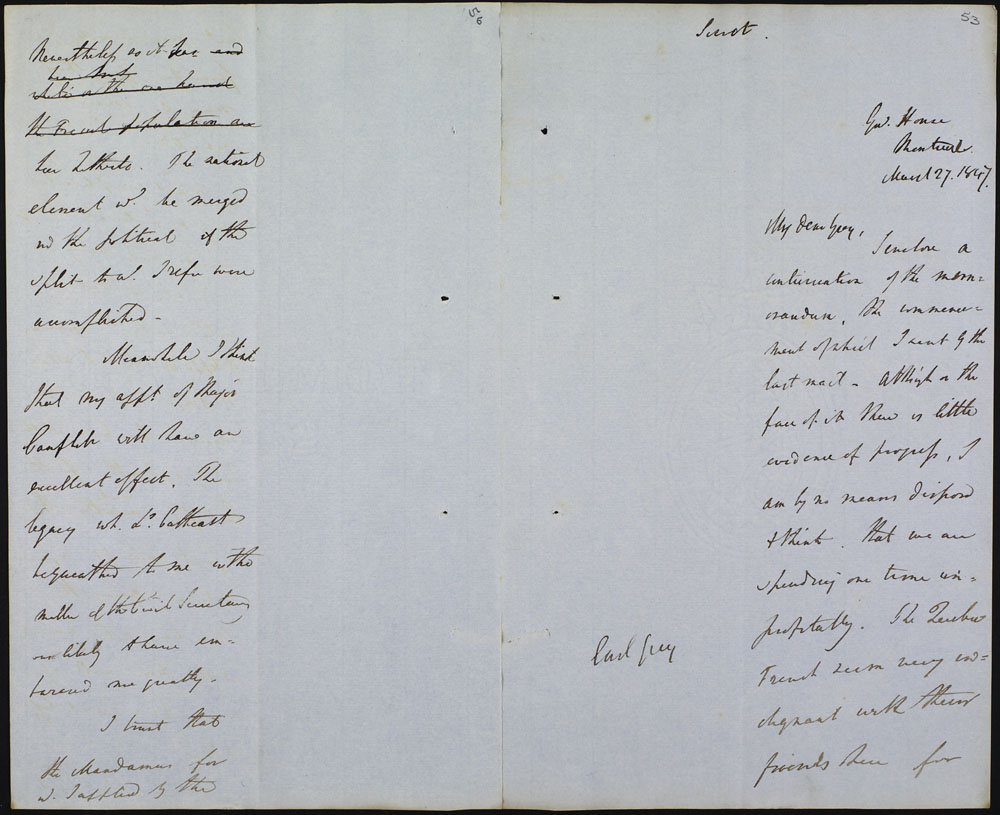 53
Secret.
Gov. House
Montreal.
March 27. 1847.
My dear Grey,
I enclose a
continuation of the mem=
orandum, the commence=
ment of which I sent by the
last mail – Although on the
face of it there is little
evidence of progress, I
am by no means disposed
to think that we are
spending our time un=
profitably. The Quebec
French seem very in=
dignant with their
friends here for
Earl Grey
56
Nevertheless as it has
been
the French population are
been hitherto. The national
element wd. be merged
in the political if the
split to wh. I refer were
accomplished –
Meanwhile I think
that my appt. of Major
Campbell will have an
excellent effect. The
legacy wh. Ld. Cathcart
bequeathed to me in the
matter of the Civil Secretary
is likely to have em=
barrassed me greatly.
I trust that
the Mandamus for
wh. I applied by the